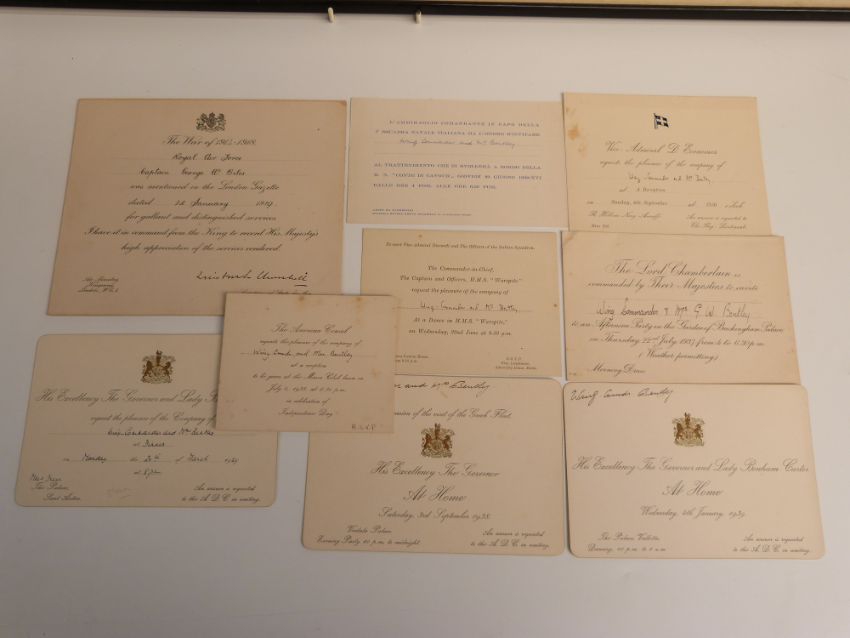 The War of 1914-1918.
Royal Air Force
Captain George W.
was mentioned in the London Gazette
dated 1st January 1919
for gallant and distinguished services
I have it in command from the King to record His Majesty's
high appreciation of the services rendered.
Air Ministry
Kingsway
London, W.C.2.
L'AMMIRAGLIO COMANDANTE IN CAPO DELLA
SQUADRA NAVALE ITALIANA HA L'ONORE D'INVITARE
Wing Commander and Mrs Bentley
AL TRATTENIMENTO CHE SI SVOLGERÀ A BORDO DELLA
R. N. "CONTE DI CAVOUR", GIOVEDÌ GIUGNO
DALLE ORE 4 POM. ALLE ORE POM.
Vice Admiral D. Economou
requests the pleasure of the company of
Wing Commander and Mrs Bentley
at a Reception
on Sunday, 4th September at o'clock
R. Hellenic Navy
An answer is requested to
The Flag Lieutenant
To meet Vice Admiral and The Officers of the Italian Squadron.
The Commander-in-Chief,
The Captain and Officers, H.M.S. "Warspite"
request the pleasure of the company of
Wing Commander and Mrs Bentley
At a Dance in H.M.S. "Warspite,"
on Wednesday, 22nd June at 9.30 p.m.
R.S.V.P.
The Lord Chamberlain is
commanded by Their Majesties to invite
Wing Commander & Mrs G. W. Bentley
to an Afternoon Party in the Garden of Buckingham Palace
on Thursday 22nd July 1937 from 4 to 6.30 p.m.
(Weather permitting)
Morning Dress
The American Consul
requests the pleasure of the company of
Wing Comdr and Mrs Bentley
at a reception
to be given at the Club
July 4, 1938 at 6.30 p.m.
in celebration of
Independence Day
R.S.V.P.
His Excellency The Governor and Lady
request the pleasure of the Company of
Wing Commander and Mrs Bentley
at Dinner
on Monday the 20th of March 1939
at
The Palace,
An answer is requested
to the A.D.C. in waiting.
and Mrs Bentley
occasion of the visit of the Greek Fleet.
His Excellency The Governor
At Home
Saturday, 3rd September 1938.
Verdala Palace
Evening Party 10 p.m. to midnight.
An answer is requested
to the A.D.C. in waiting.
Wing Comdr Bentley
His Excellency The Governor and Lady Bonham Carter
At Home
Wednesday, 4th January, 1939.
The Palace Valletta
Dancing, 10 p.m. to 2 a.m.
An answer is requested
to the A.D.C. in waiting.